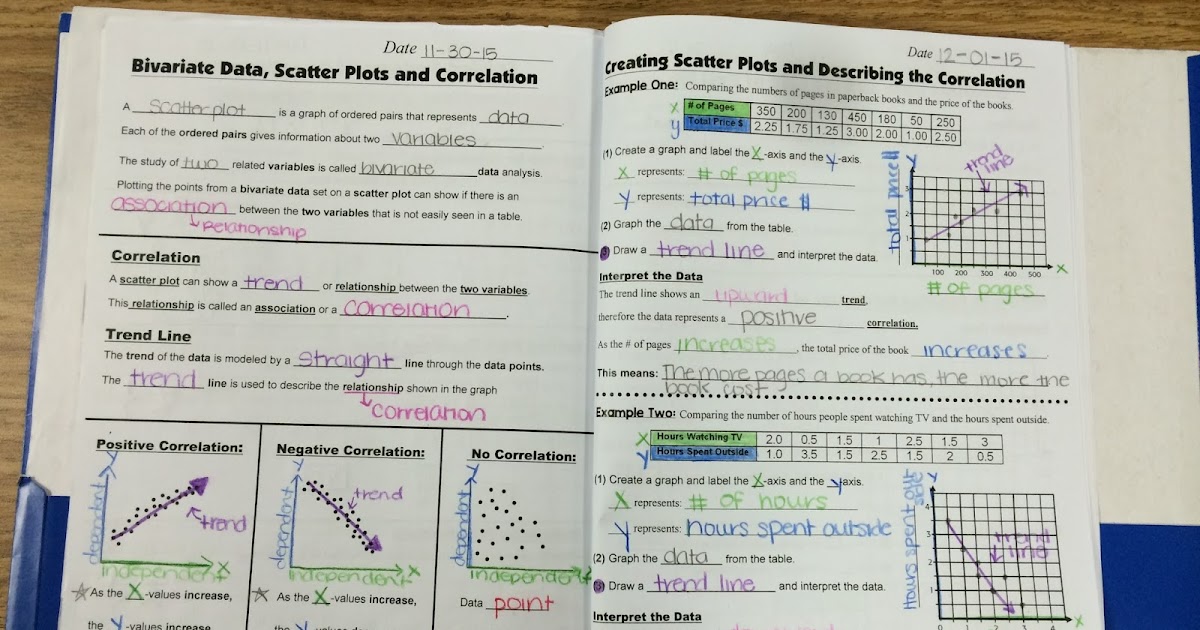 Date 11-30-15
Bivariate Data, Scatter Plots and Correlation
A scatter plot is a graph of ordered pairs that represents data.
Each of the ordered pairs gives information about two variables.
The study of two related variables is called bivariate data analysis.
Plotting the points from a bivariate data set on a scatter plot can show if there is an
association between the two variables that is not easily seen in a table.
Relationship
Correlation
A scatter plot can show a trend or relationship between the two variables.
This relationship is called an association or a correlation.
Trend Line
The trend of the data is modeled by a straight line through the data points.
The trend line is used to describe the relationship shown in the graph
correlation
Positive Correlation:
Y
dependent
trend
independent X
As the X-values increase,
the Y-values increase
Negative Correlation:
Y
dependent
trend
independent X
As the X-values increase,
the Y-values
No Correlation:
Y
dependent
independent X
Data point
Date 12-01-15
Creating Scatter Plots and Describing the Correlation
Example One: Comparing the numbers of pages in paperback books and the price of the books.
X # of Pages 350 200 130 450 180 50 250
y Total Price $ 2.25 1.75 1.25 3.00 2.00 1.00 2.50
(1) Create a graph and label the X-axis and the y-axis.
X represents: # of pages
y represents: total price $
(2) Graph the data from the table.
(3) Draw a trend line and interpret the data.
total price $
Y
trend line
3
2
1
100 200 300 400 500 X
# of pages
Interpret the Data
The trend line shows an upward trend,
therefore the data represents a positive correlation.
As the # of pages increases, the total price of the book increases.
This means: The more pages a book has, the more the
book cost
Example Two: Comparing the number of hours people spent watching TV and the hours spent outside.
X Hours Watching TV 2.0 0.5 1.5 1 2.5 1.5 3
Y Hours Spent Outside 1.0 3.5 1.5 2.5 1.5 2 0.5
(1) Create a graph and label the X-axis and the y-axis.
X represents: # of hours
y represents: hours spent outside
(2) Graph the data from the table.
(3) Draw a trend line and interpret the data.
hours spent outside
Y
trend line
4
3
2
1
0 1 2 3 4 X
Interpret the Data